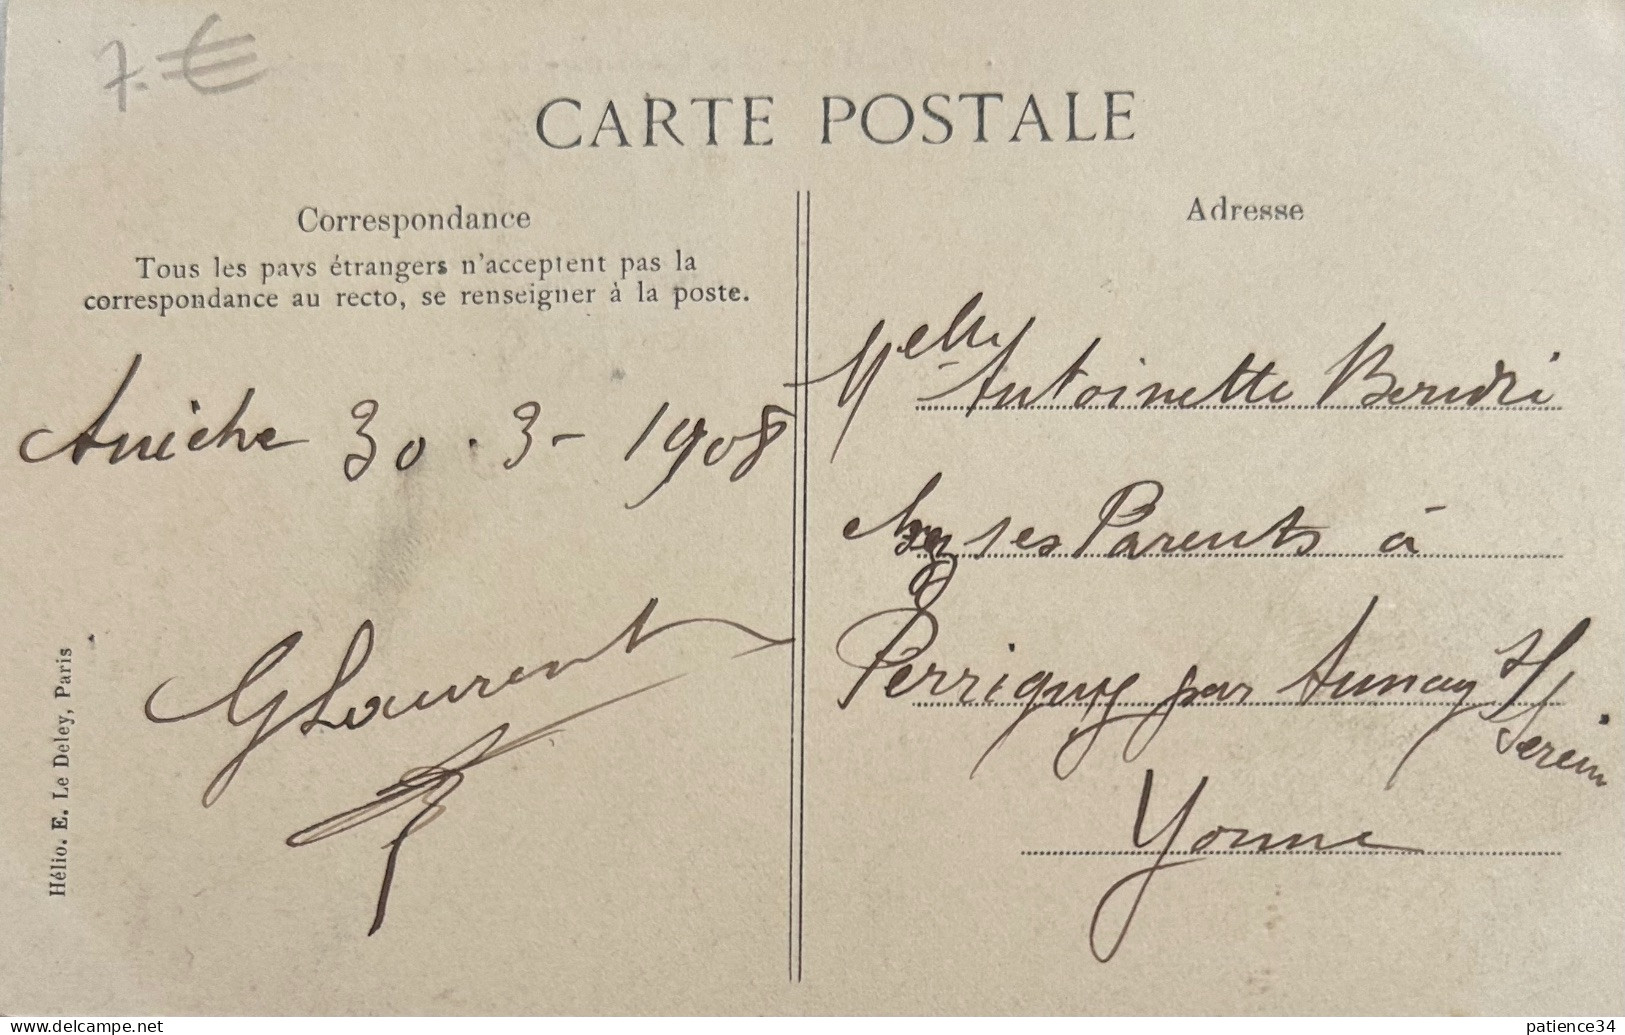 7.€
CARTE POSTALE
Correspondance
Tous les pays étrangers n'acceptent pas la
correspondance au recto, se renseigner à la poste.
Aniche 30.3-1908
G Laurent
Hélio. E. Le Deley, Paris
Adresse
Melle Antoinette
chez ses Parents à
Perriguy par Annay S/
Serein
Yonne
patience34